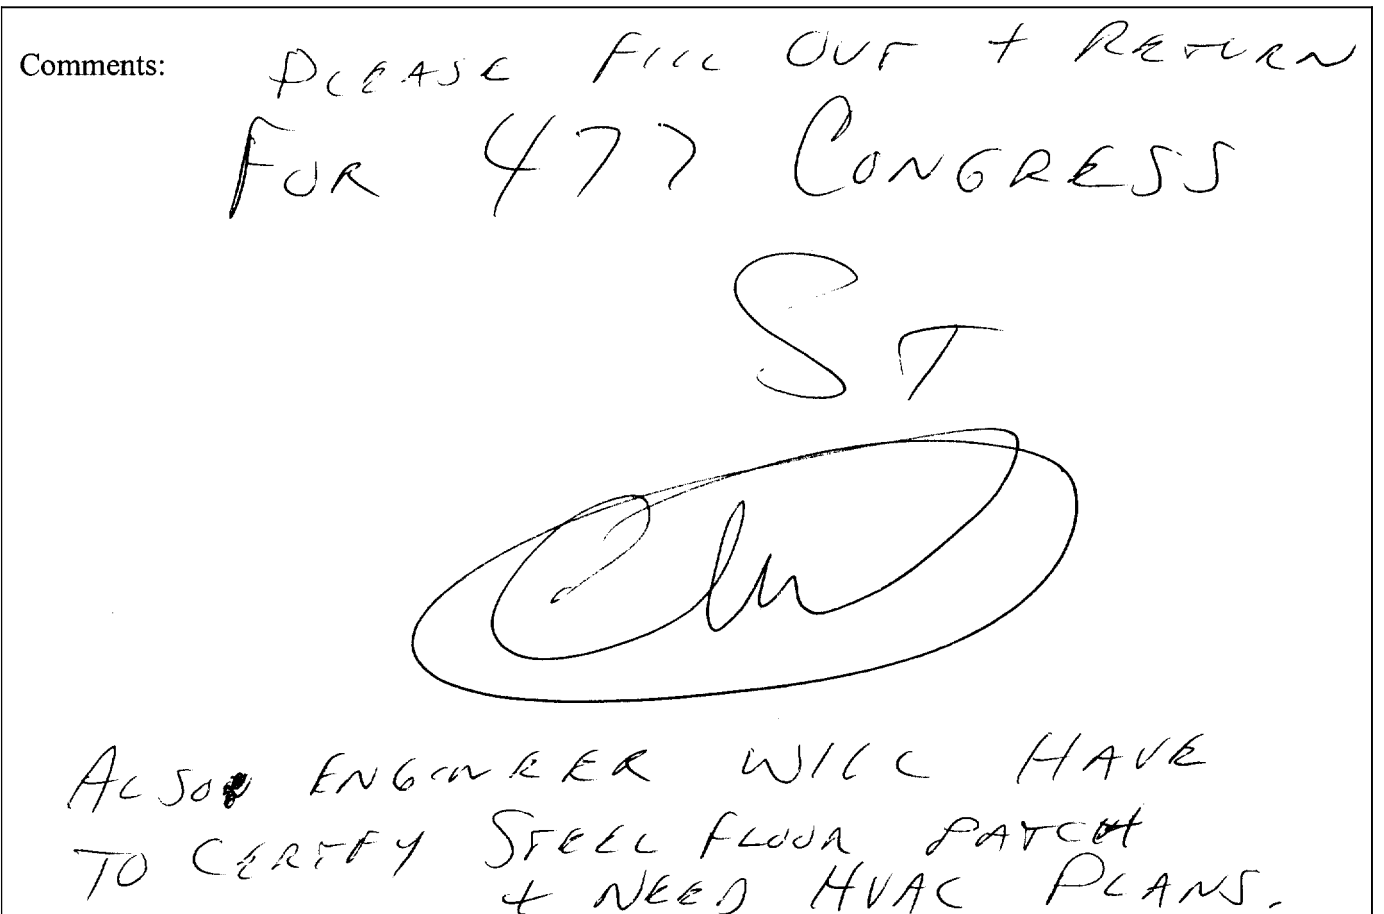 Comments: PLEASE FILL OUT + RETURN
FOR 477 CONGRESS
ST
ALSO ENGINEER WILL HAVE
TO CERTIFY STEEL FLOOR PATCH
+ NEED HVAC PLANS.